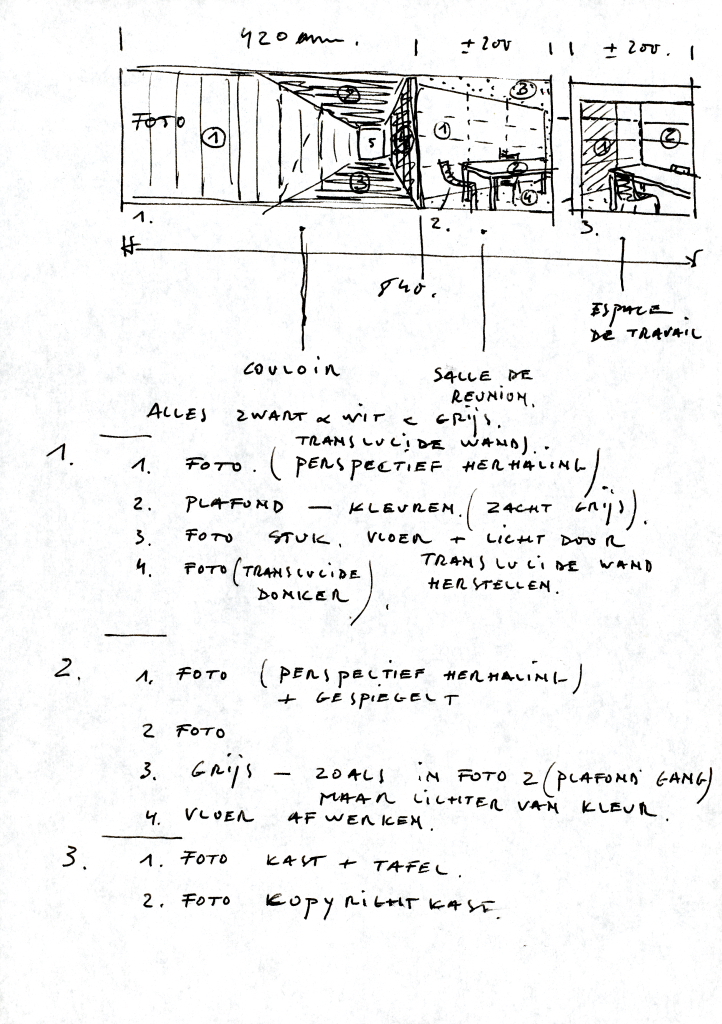 420 mm. ± 200 ± 200.
FOTO 1 2 3 5 1 3 2 4 1 2
1. 2. 3.
840.
ESPACE
DE TRAVAIL
COULOIR
SALLE DE
REUNION.
ALLES ZWART & WIT < GRIJS.
TRANSLUCIDE WAND).
1.
1. FOTO. (PERSPECTIEF HERHALING)
2. PLAFOND — KLEUREN. (ZACHT GRIJS).
3. FOTO STUK. VLOER + LICHT DOOR
TRANSLUCIDE WAND
HERSTELLEN.
4. FOTO (TRANSLUCIDE
DONKER).
2.
1. FOTO (PERSPECTIEF HERHALING)
+ GESPIEGELT
2 FOTO
3. GRIJS — ZOALS IN FOTO 2 (PLAFOND GANG)
MAAR LICHTER VAN KLEUR.
4. VLOER AFWERKEN.
3.
1. FOTO KAST + TAFEL.
2. FOTO KOPYRIGHT KAST.